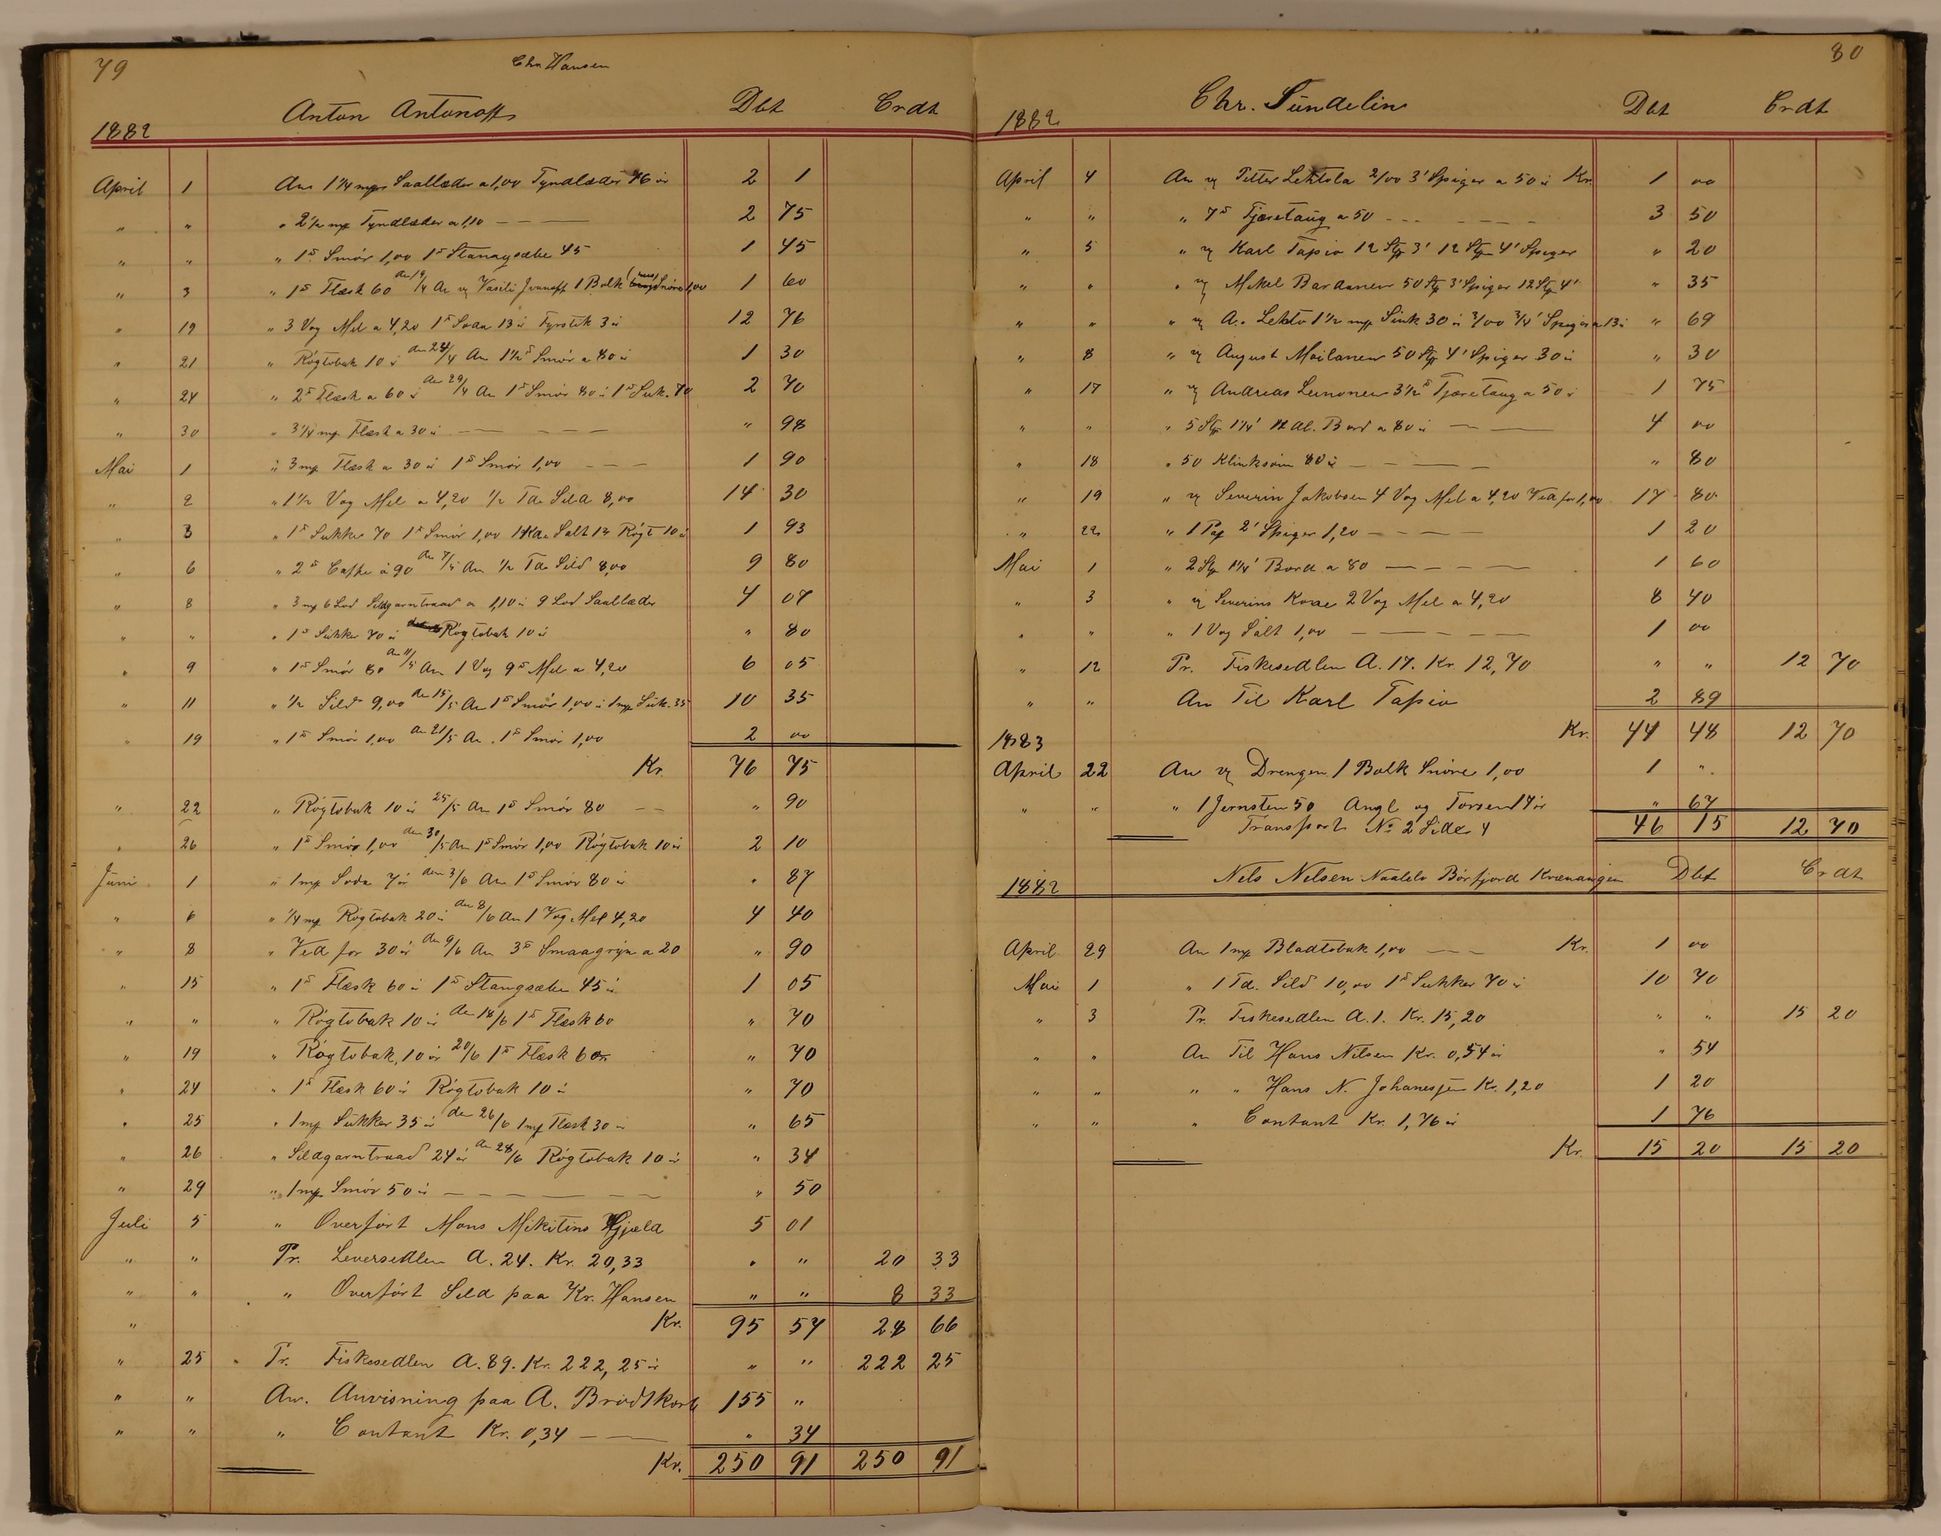 79
Chr Hansen
1882 Anton Antonoff Dbt Crdt
April 1 An 1 1/4 mp Saallæder a 1,00 Tyndlæder 76 ør 2 1
" " " 2 1/2 mp Tyndlæder a 1,10 — — — 2 75
" " " 1 ℔ Smör 1,00 1 ℔ Stangsæbe 45 1 45
" 3 " 1 ℔ Flæsk 60 den 19/4 An v Vasili Ivanoff 1 Bolk Snöre 1,00 1 60
" 19 " 3 Vog Mel a 4,20 1 ℔ Soda 13 ø Fyrstik 3 ø 12 76
" 21 " Rögtobak 10 ø den 24/4 An 1 1/2 ℔ Smör a 80 ø 1 30
" 24 " 2 ℔ Flæsk a 60 ø den 29/4 An 1 ℔ Smör 80 ø 1 ℔ Suk. 70 2 70
" 30 " 3 1/4 mp Flæsk a 30 ø — — — " 98
Mai 1 " 3 mp Flæsk a 30 ø 1 ℔ Smör 1,00 — — — 1 90
" 2 " 1 1/2 Vog Mel a 4,20 1/2 Tde Sild 8,00 14 30
" 3 " 1 ℔ Sukker 70 1 ℔ Smör 1,00 1 Kde Salt 13 Rögt 10 ø 1 93
" 6 " 2 ℔ Caffe a 90 den 7/5 An 1/2 Tde Sild 8,00 9 80
" 8 " 3 mp 6 Lod Sildgarntraad a 1,10 ø 9 Lod Saallæder 4 04
" " " 1 ℔ Sukker 70 ø Rögtobak 10 ø " 80
" 9 " 1 ℔ Smör 80 den 11/5 An 1 Vog 9 ℔ Mel a 4,20 6 05
" 11 " 1/2 Sild 9,00 den 15/5 An 1 ℔ Smör 1,00 ø 1 mp Suk. 35 10 35
" 19 " 1 ℔ Smör 1,00 den 21/5 An 1 ℔ Smör 1,00 2 00
Kr. 76 75
" 22 " Rögtobak 10 ø 25/5 An 1 ℔ Smör 80 — — " 90
" 26 " 1 ℔ Smör 1,00 den 30/5 An 1 ℔ Smör 1,00 Rögtobak 10 ø 2 10
Juni 1 " 1 mp Soda 7 ør den 3/6 An 1 ℔ Smör 80 ø " 87
" 6 " 1/4 mp Rögtobak 20 ø den 8/6 An 1 Vog Mel 4,20 4 40
" 8 " Ved for 30 ø den 9/6 An 3 ℔ Smaagryn a 20 " 90
" 15 " 1 ℔ Flæsk 60 ø 1 ℔ Stangsæbe 45 ø 1 05
" " " Rögtobak 10 ø den 18/6 1 ℔ Flæsk 60 " 70
" 19 " Rögtobak 10 ør 20/6 1 ℔ Flæsk 60 " 70
" 24 " 1 ℔ Flæsk 60 ø Rögtobak 10 ø " 70
" 25 " 1 mp Sukker 35 ø den 26/6 1 mp Flæsk 30 ø " 65
" 26 " Sildgarntraad 24 ør den 28/6 Rögtobak 10 ø " 34
" 29 " 1 mp Smör 50 ø — — — — " 50
Juli 5 " Overfört Mons Mikitins Gjæld 5 01
" " Pr. Leversedlen A. 24. Kr. 20,33 " " 20 33
" " " Overfört Sild paa Kr. Hansen " " 8 33
" Kr. 95 57 28 66
" 25 " Pr. Fiskesedlen A. 89. Kr. 222,25 ø " " 222 25
" " An. Anvisning paa A. Brodtkorb 155 "
" " " Contant Kr. 0,34 — — " 34
Kr. 250 91 250 91
80
1882 Chr. Sundelin Dbt Crdt
April 4 An v Petter Lehtola 2/00 3' Spiger a 50 ø Kr. 1 00
" " " 7 ℔ Tjæretaug a 50 — — — 3 50
" 5 " v Karl Tapio 12 Stp 3' 12 Stp 4' Spiger " 20
" " " v Mikel Bardanen 50 Stp 3' Spiger 12 Stp 4' " 35
" " " v A. Lehto 1 1/2 mp Sink 30 ø 3/00 3/4' Spiger a 13 ø " 69
" 8 " v August Mailanen 50 Stp 4' Spiger 30 ø " 30
" 17 " v Andreas Leinonen 3 1/2 ℔ Tjæretaug a 50 ø 1 75
" " " 5 Stp 1 1/4' 12 Al. Bord a 80 ø — — 4 00
" 18 " 50 Klinksöm 80 ø — — — " 80
" 19 " v Severin Jakobsen 4 Vog Mel a 4,20 Ved for 1,00 17 80
" 22 " 1 Pak 2' Spiger 1,20 — — — 1 20
Mai 1 " 2 Stp 1 1/4' Bord a 80 — — — 1 60
" 3 " v Severins Kone 2 Vog Mel a 4,20 8 40
" " " 1 Vog Salt 1,00 — — — 1 00
" 12 Pr. Fiskesedlen A. 17. Kr. 12,70 " " 12 70
" " An Til Karl Tapio 2 89
Kr. 44 48 12 70
1883
April 22 An v Drengen 1 Bolk Snöre 1,00 1 "
" " " 1 Jernsten 50 Angl og Torsen 17 ør " 67
Transport No 2 Side 4 46 15 12 70
1882 Nils Nilsen Naalelv Börfjord Kvænangen Dbt Crdt
April 29 An 1 mp Bladtobak 1,00 — — Kr. 1 00
Mai 1 " 1 Td. Sild 10,00 1 ℔ Sukker 70 ø 10 70
" 3 Pr. Fiskesedlen A. 1. Kr. 15,20 " " 15 20
" " An Til Hans Nilsen Kr. 0,54 ø " 54
" " " " Hans N. Johanesen Kr. 1,20 1 20
" " " Contant Kr. 1,76 ø 1 76
Kr. 15 20 15 20